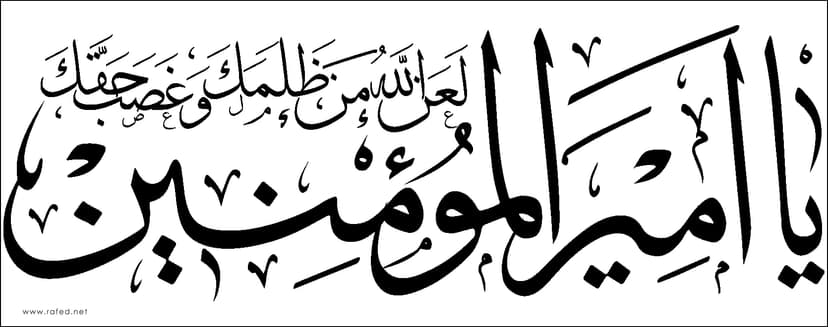 لَعَنَ اللهُ مَنْ ظَلَمَكَ وَغَصَبَ حَقَّكَ
يا اميرَ المُؤمِنين
www.rafed.net